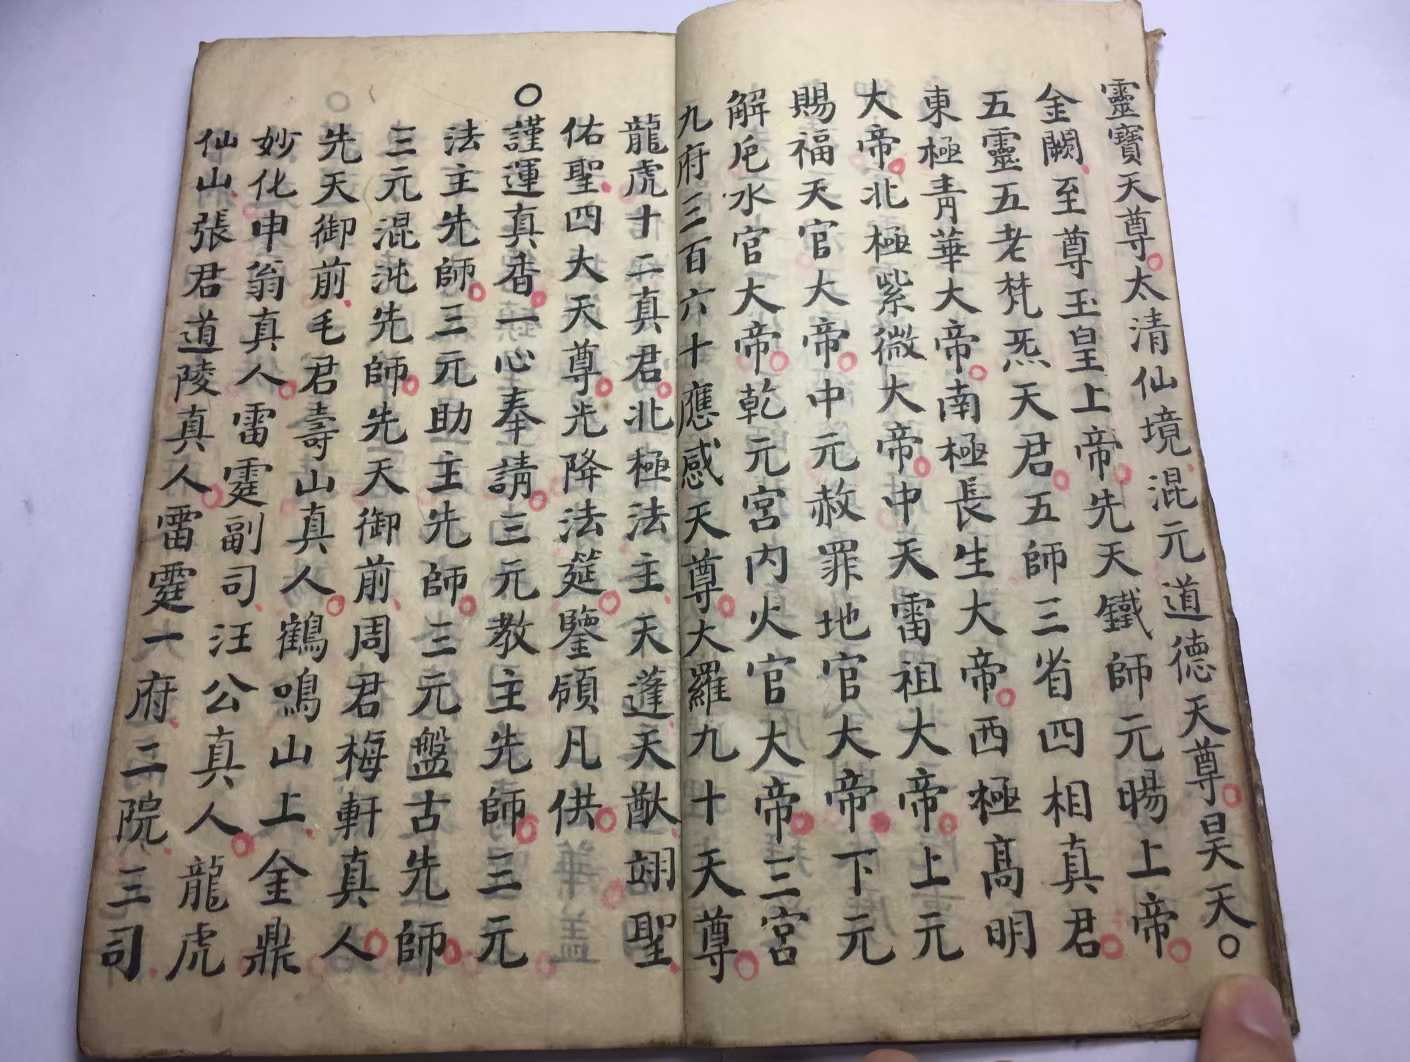 靈寶天尊太清仙境混元道德天尊昊天○
金闕至尊玉皇上帝先天鐵師元暘上帝
五靈五老梵炁天君五師三省四相真君
東極青華大帝南極長生大帝西極高明
大帝北極紫微大帝中天雷祖大帝上元
賜福天官大帝中元赦罪地官大帝下元
解厄水官大帝乾元宮內火官大帝三宮
九府三百六十應感天尊大羅九十天尊
龍虎十二真君北極法主天蓬天猷翊聖
佑聖四大天尊光降法筵鑒領凡供
○謹運真香一心奉請三元教主先師三元
法主先師三元助主先師三元盤古先師
三元混沌先師先天御前周君梅軒真人
先天御前毛君壽山真人鶴鳴山上金鼎
妙化申翁真人雷霆副司汪公真人龍虎
仙山張君道陵真人雷霆一府二院三司